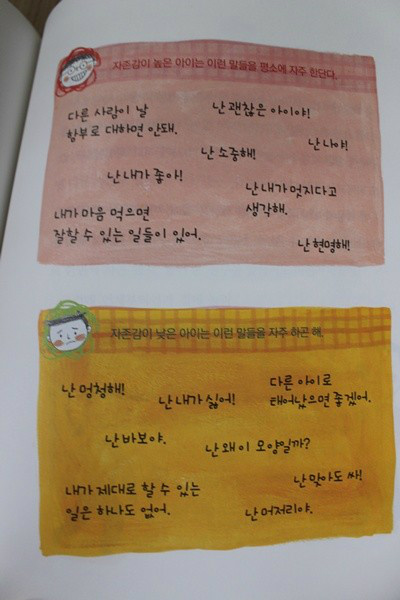 자존감이 높은 아이는 이런 말들을 평소에 자주 한단다.
다른 사람이 날
함부로 대하면 안돼.
난 괜찮은 아이야!
난 나야!
난 소중해!
난 내가 좋아!
난 내가 멋지다고
생각해.
내가 마음 먹으면
잘할 수 있는 일들이 있어.
난 현명해!
자존감이 낮은 아이는 이런 말들을 자주 하곤 해.
난 멍청해!
난 내가 싫어!
다른 아이로
태어났으면 좋겠어.
난 바보야.
난 왜 이 모양일까?
난 맞아도 싸!
내가 제대로 할 수 있는
일은 하나도 없어.
난 머저리야.